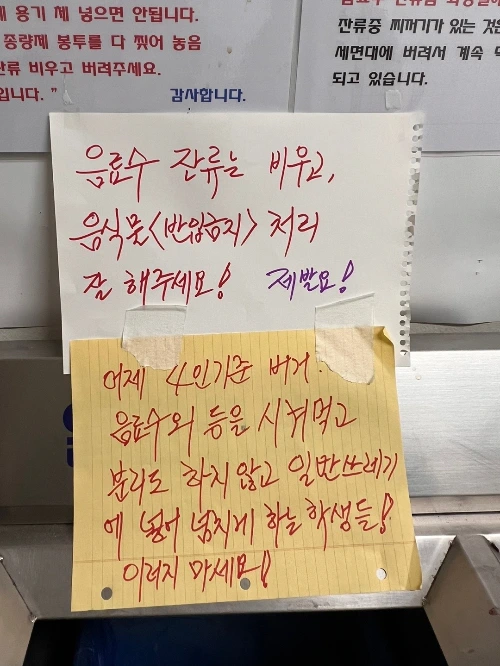 용기 체 넣으면 안됩니다.
종량제 봉투를 다 찢어 놓음
잔류 비우고 버려주세요.
입니다. "
감사합니다.
잔류중 찌꺼기가 있는 것은
세면대에 버려서 계속
되고 있습니다.
음료수 잔류는 비우고,
음식물<반입금지> 처리
잘 해주세요! 제발요!
어제 4인기준 버거.
음료수외 등을 시켜먹고
분리도 하지않고 일반쓰레기
에 넣어 넘치게 하는 학생들!
이러지 마세요!